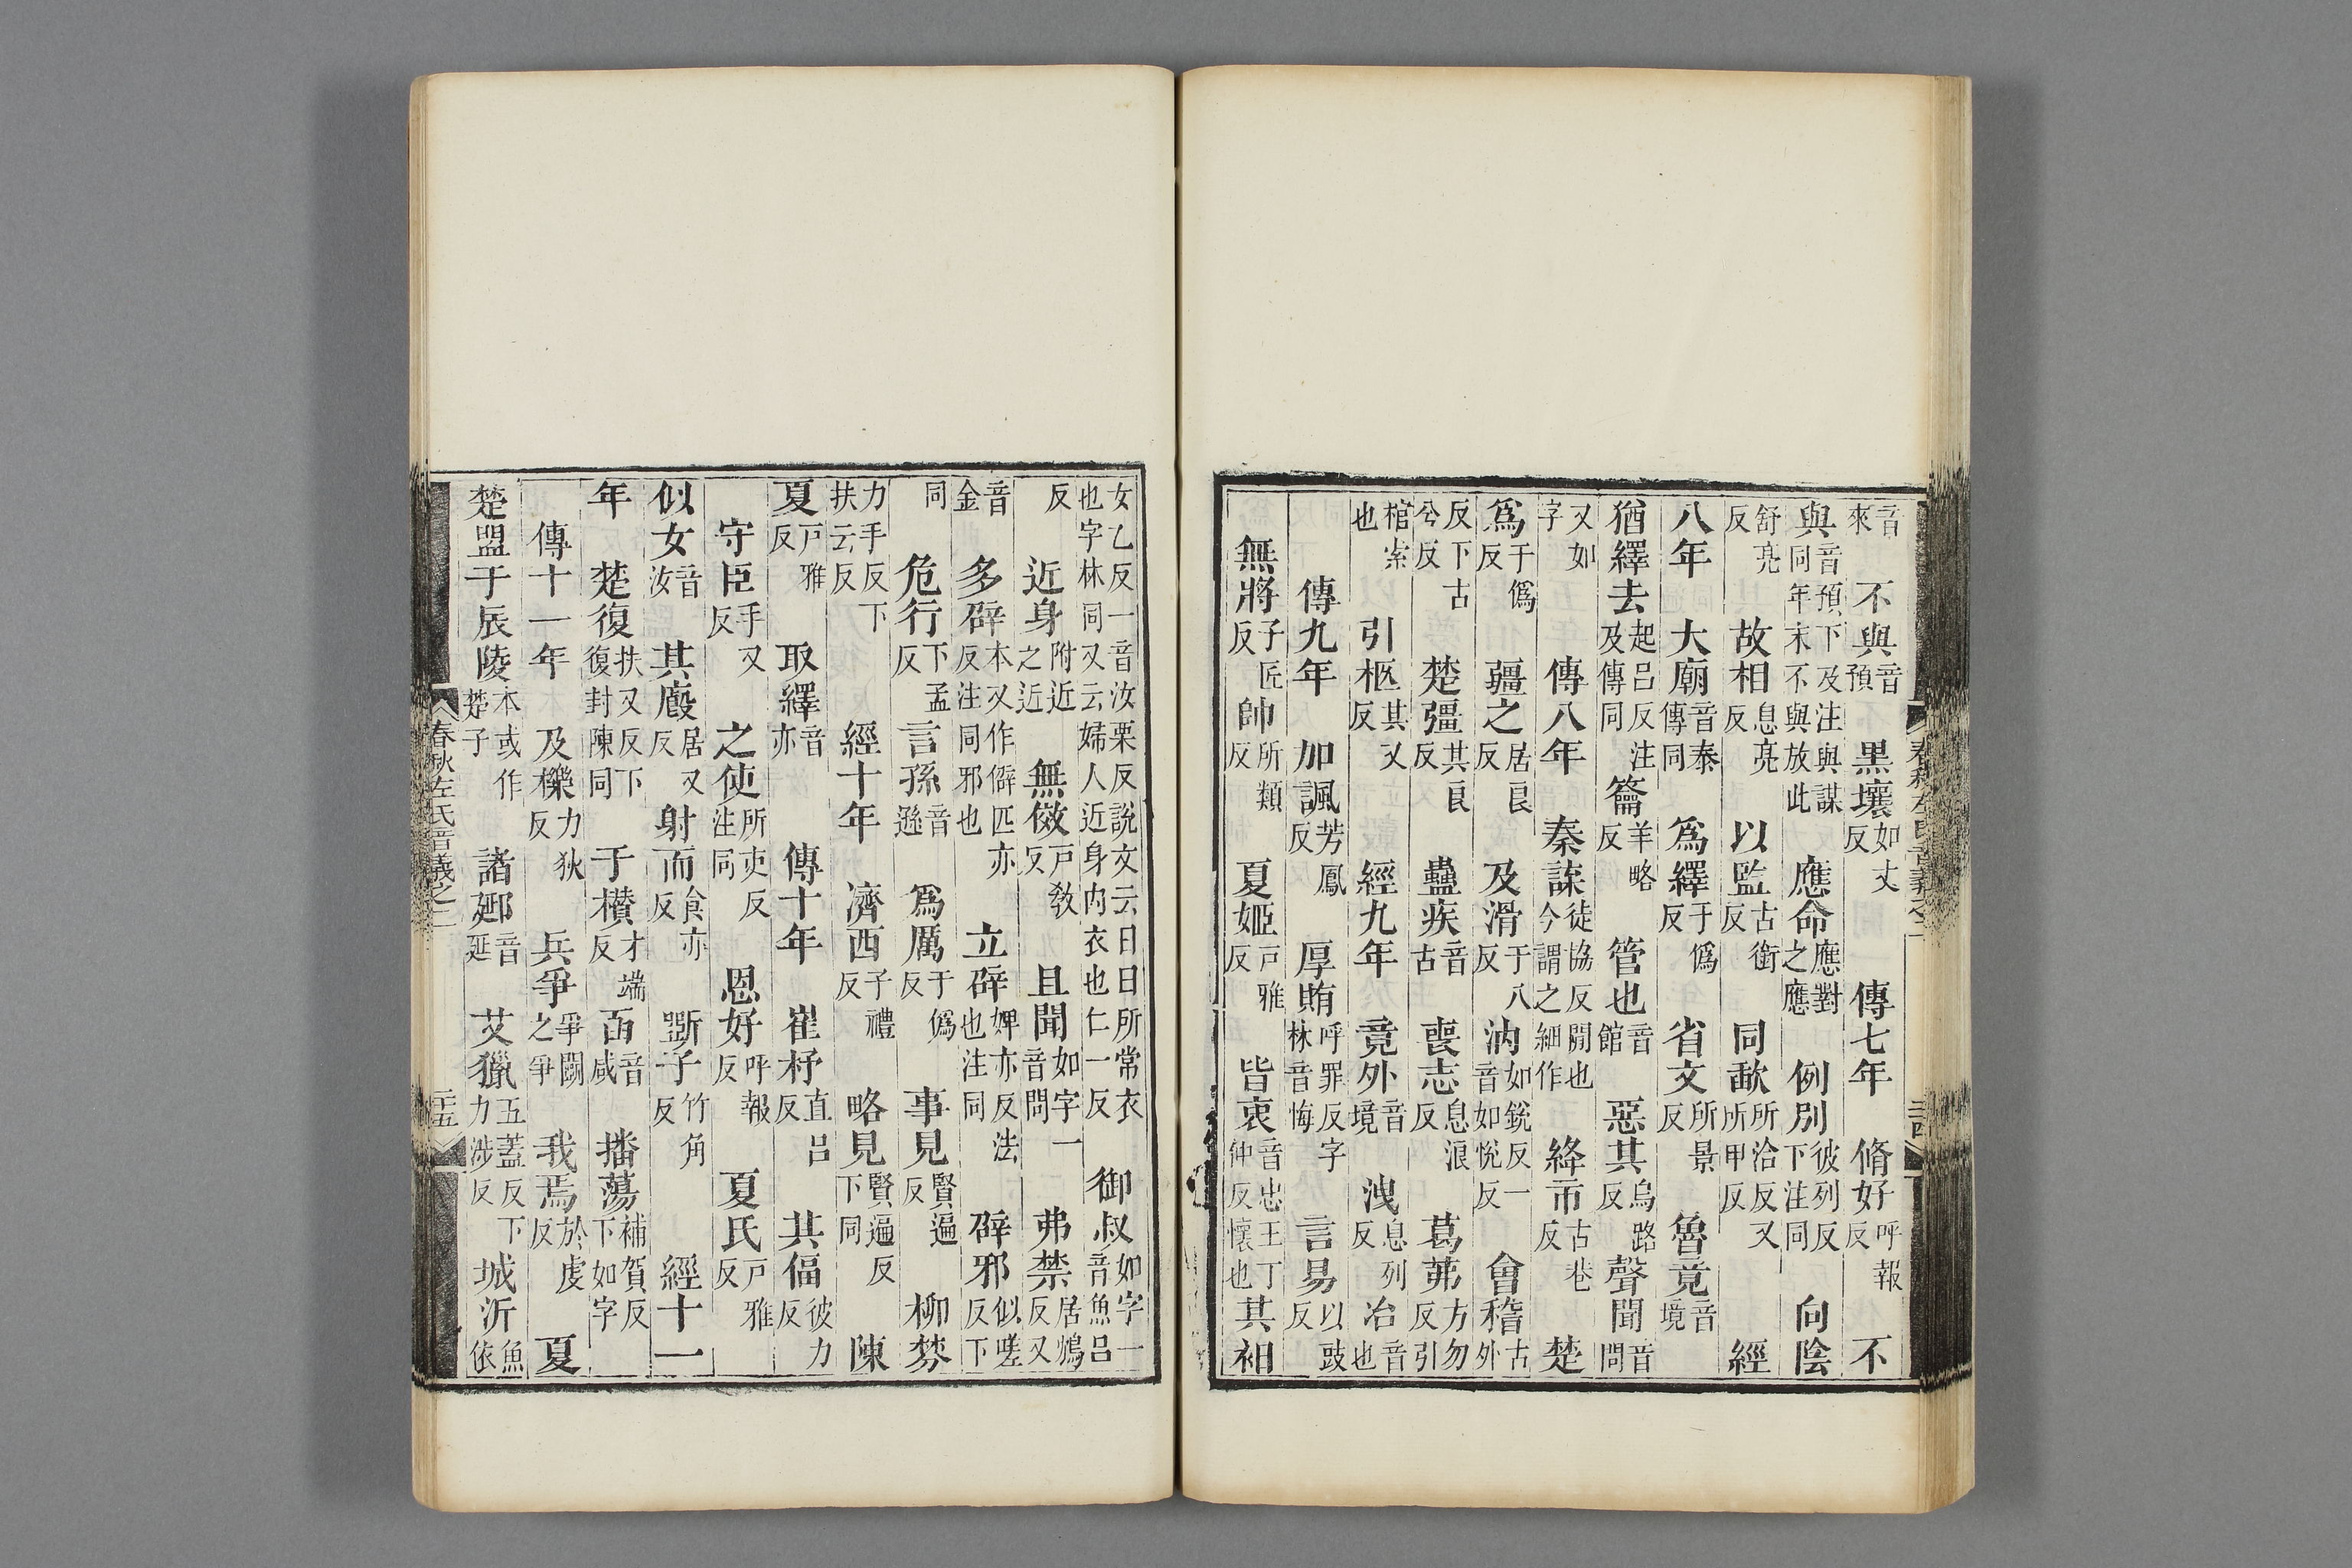 音來 不與音預 黑壤如丈反 傳七年 脩好呼報反 不
與音預下及注與謀同年末不與放此 應命應對之應 例別彼列反下注同 向陰
舒亮反 故相息亮反 以監古銜反 同歃所洽反又所甲反 經
八年 大廟音泰傳同 爲繹于僞反 省文所景反 魯竟音境
猶繹去起呂反注及傳同 籥羊略反 管也音館 惡其烏路反 聲聞音問
又如字 傳八年 秦諜徒協反閒也今謂之細作 絳市古巷反 楚
爲于僞反 疆之居良反 及滑于八反 汭如銳反一音如悅反 會稽古外
反下古兮反 楚彊其良反 蠱疾音古 喪志息浪反 葛茀方勿反引
棺索也 引柩其又反 經九年 竟外音境 洩息列反 冶音也
傳九年 加諷芳鳳反 厚賄呼罪反字林音悔 言易以豉反
無將子匠反 帥所類反 夏姬戸雅反 皆衷音忠王丁仲反懷也 其衵
女乙反一音汝栗反說文云日日所常衣也字林同又云婦人近身內衣也仁一反 御叔如字一音魚呂
反 近身附近之近 無傚戸教反 且聞如字一音問 弗禁居鴆反又
音金 多辟本又作僻匹亦反注同邪也 立辟婢亦反法也注同 辟邪似嗟反下
同 危行下孟反 言孫音遜 爲厲于僞反 事見賢遍反 柳棼
力手反下扶云反 經十年 濟西子禮反 略見賢遍反下同 陳
夏戸雅反 取繹音亦 傳十年 崔杼直呂反 共偪彼力反
守臣手又反 之使所吏反注同 恩好呼報反 夏氏戸雅反
似女音汝 其廏居又反 射而食亦反 斲子竹角反 經十一
年 楚復扶又反下復封陳同 于欑才端反 函音咸 播蕩補賀反下如字
傳十一年 及櫟力狄反 兵爭爭鬭之爭 我焉於虔反 夏
楚盟于辰陵本或作楚子 諸郔音延 艾獵五蓋反下力涉反 城沂魚依
春秋左氏音義之二 二十五